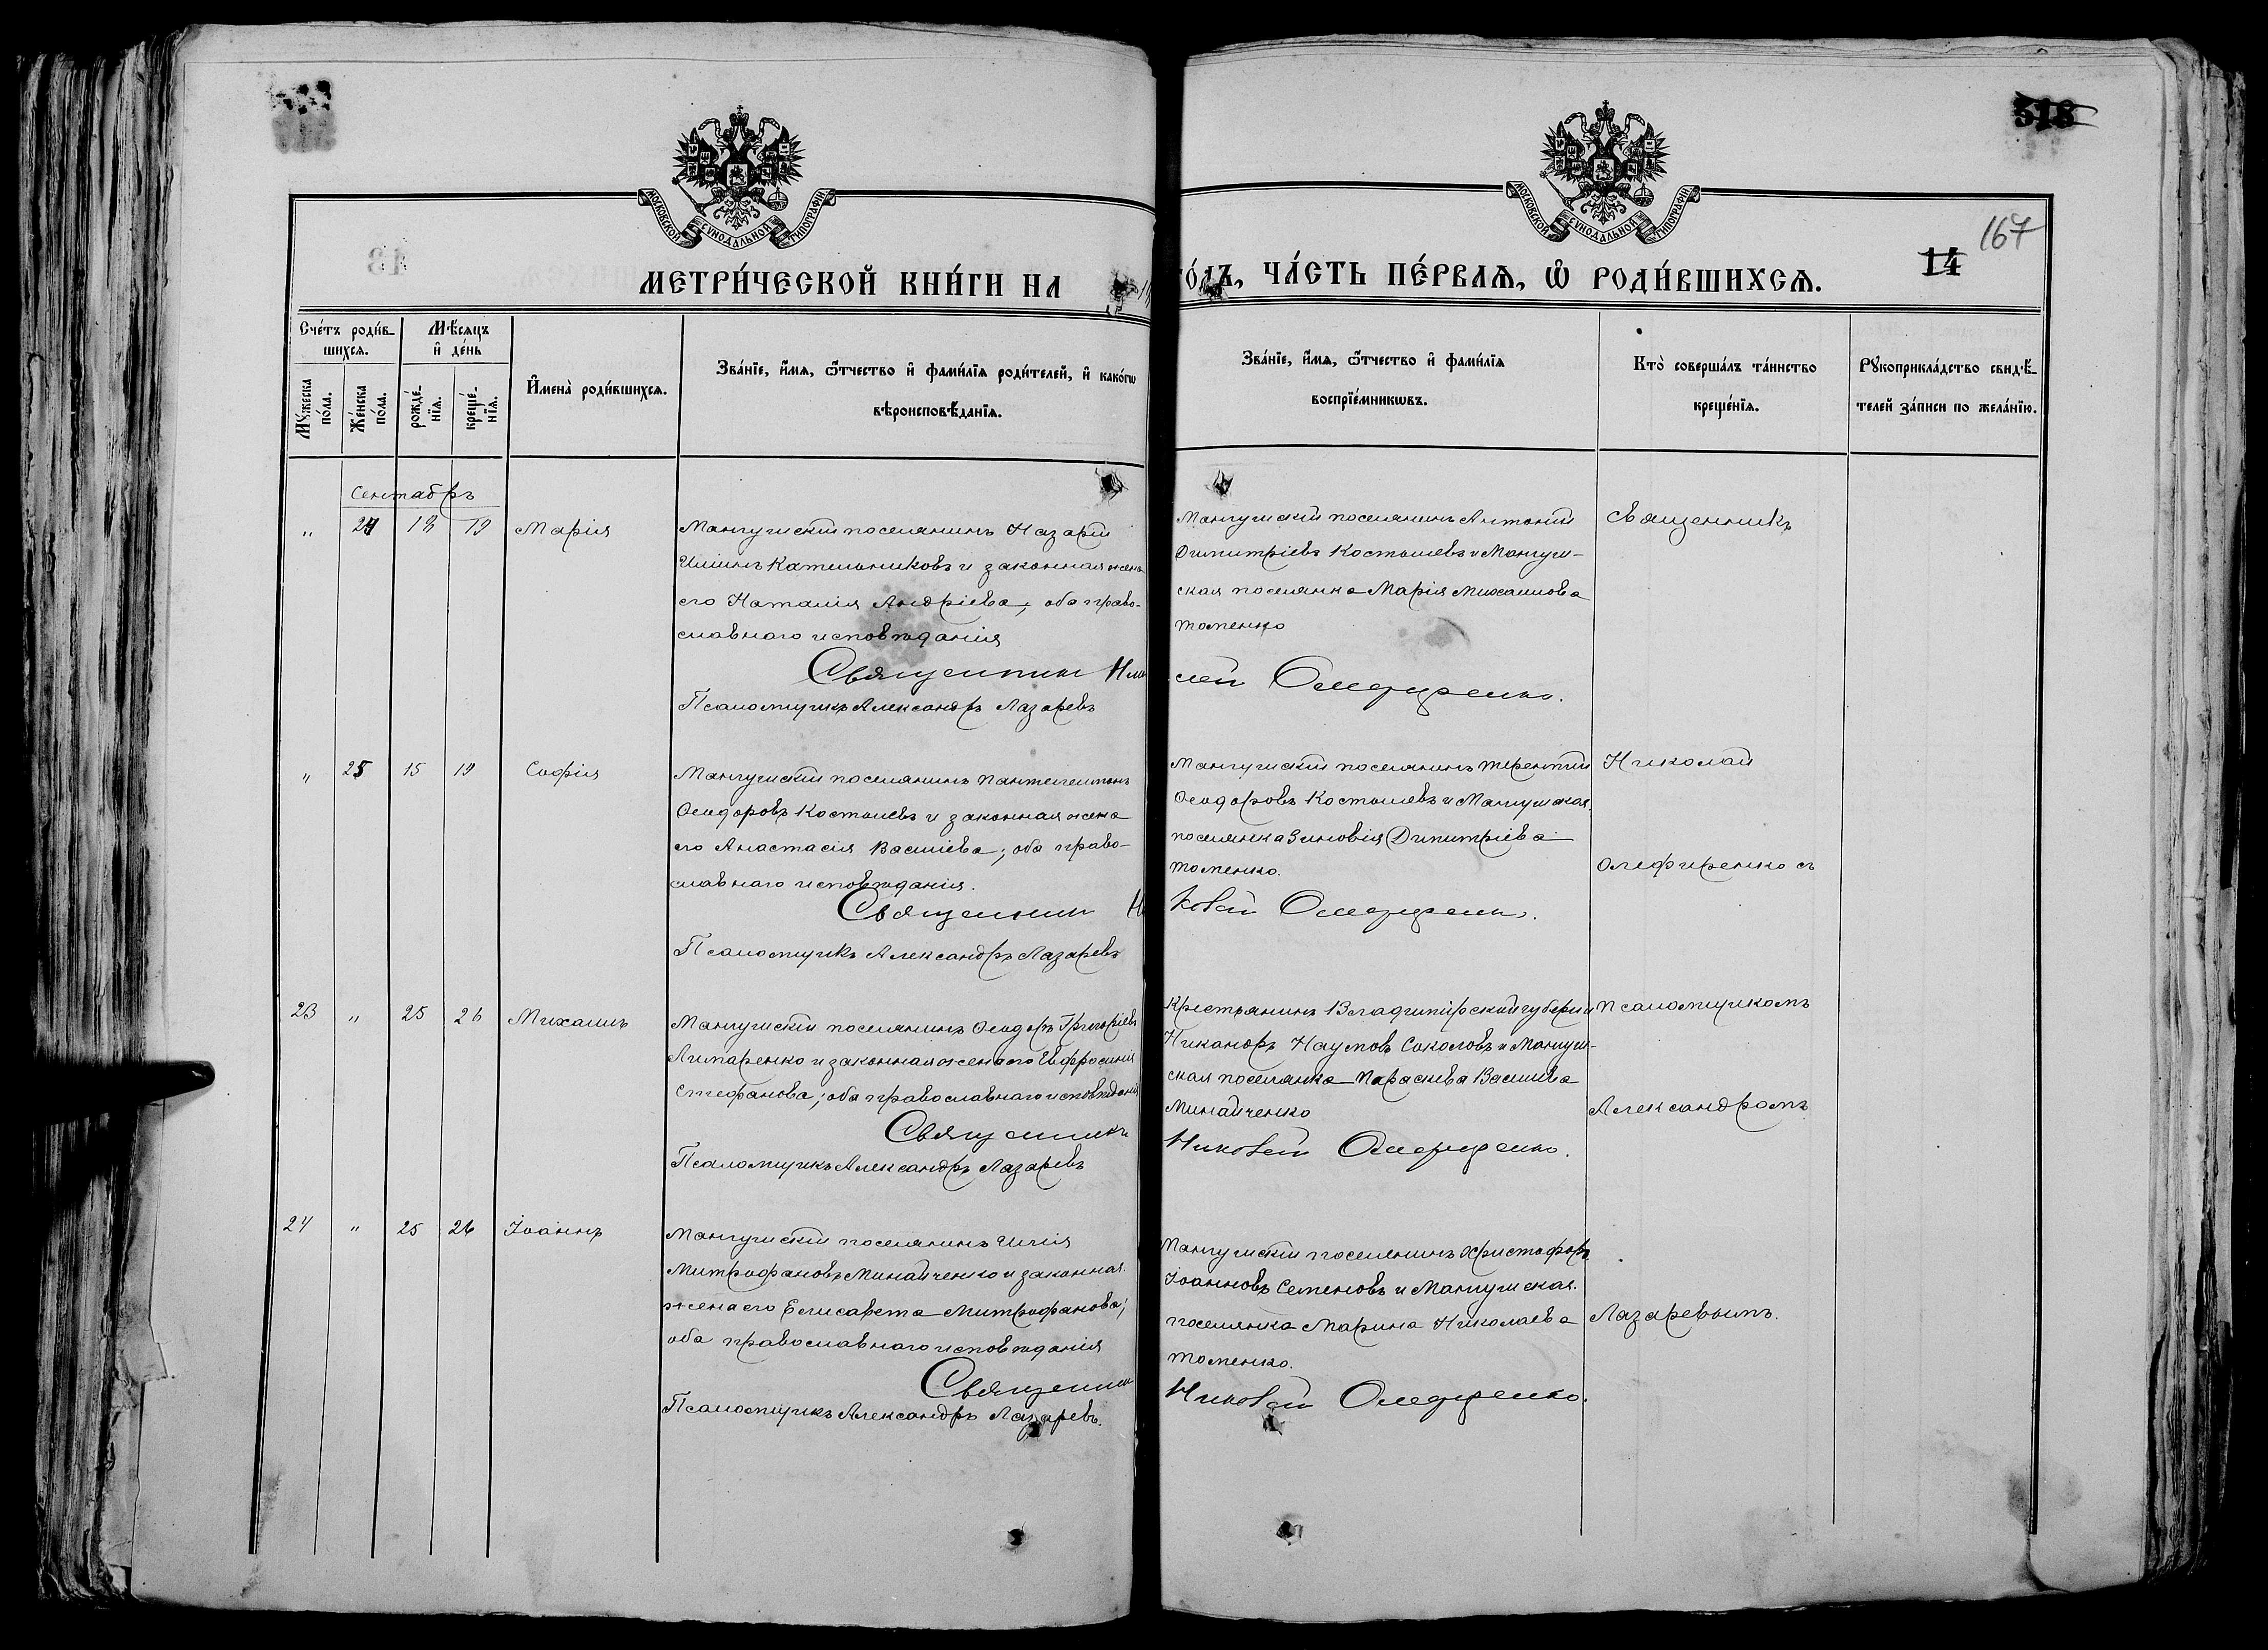 518
167
14
МОСКОВСКОЙ СѴНОДАЛЬНОЙ ТИПОГРАФІИ
МОСКОВСКОЙ СѴНОДАЛЬНОЙ ТИПОГРАФІИ
МЕТРИ́ЧЕСКОЙ КНИ́ГИ НА
ГО́ДЪ, ЧА́СТЬ ПЕ́РВАѦ, Ѽ РОДИ́ВШИХСѦ.
Сче́тъ роди́в-
шихсѧ.
Мѣ́сѧцъ
и҆ де́нь
Мꙋ́жеска
по́ла.
Же́нска
по́ла.
рожде́-
нїѧ.
креще́-
нїѧ.
И҆мена̀ роди́вшихсѧ.
Зва́нїе, и҆́мѧ, ѻ҆́тчество и҆ фами́лїѧ роди́телей, и҆ како́гѡ
вѣроисповѣ́данїѧ.
Зва́нїе, и҆́мѧ, ѻ҆́тчество и҆ фами́лїѧ
воспрїе́мникѡвъ.
Кто̀ соверша́лъ та́инство
креще́нїѧ.
Рꙋкоприкла́дство свидѣ́-
телей за́писи по жела́нїю.
Сентябрь
" 24 18 19 Марія
Мангушскій поселянинъ Назарій
Иліинъ Кательниковъ и законная жена
его Наталія Андріева; оба право-
славнаго исповѣданія
Священникъ Николай Олефиренко.
Псаломщикъ Александръ Лазаревъ
Мангушскій поселянинъ Антоній
Димитріевъ Костылевъ и Мангуш-
ская поселянка Марія Михаилова
Томенко
Священникъ
" 25 15 19 Софія
Мангушскій поселянинъ Пантелеимонъ
Ѳеодоровъ Костылевъ и законная жена
его Анастасія Василіева; оба право-
славнаго исповѣданія.
Священникъ Николай Олефиренко.
Псаломщикъ Александръ Лазаревъ
Мангушскій поселянинъ Терентій
Ѳеодоровъ Костылевъ и Мангушская
поселянка Зиновія Димитріева
Томенко.
Николай
Олефиренко съ
23 " 25 26 Михаилъ
Мангушскій поселянинъ Ѳеодоръ Григоріевъ
Лимаренко и законная жена его Евфросинія
Стефанова; оба православнаго исповѣданія
Священникъ Николай Олефиренко.
Псаломщикъ Александръ Лазаревъ
Крестьянинъ Владимірской губерніи
Никаноръ Наумовъ Соколовъ и Мангуш-
ская поселянка Параскева Василіева
Минайченко
Псаломщикомъ
Александромъ
24 " 25 26 Іоаннъ
Мангушскій поселянинъ Илія
Митрофановъ Минайченко и законная
жена его Елисавета Митрофанова;
оба православнаго исповѣданія
Священникъ Николай Олефиренко.
Псаломщикъ Александръ Лазаревъ.
Мангушскій поселянинъ Христофоръ
Іоанновъ Семеновъ и Мангушская
поселянка Марина Николаева
Томенко.
Лазаревымъ.